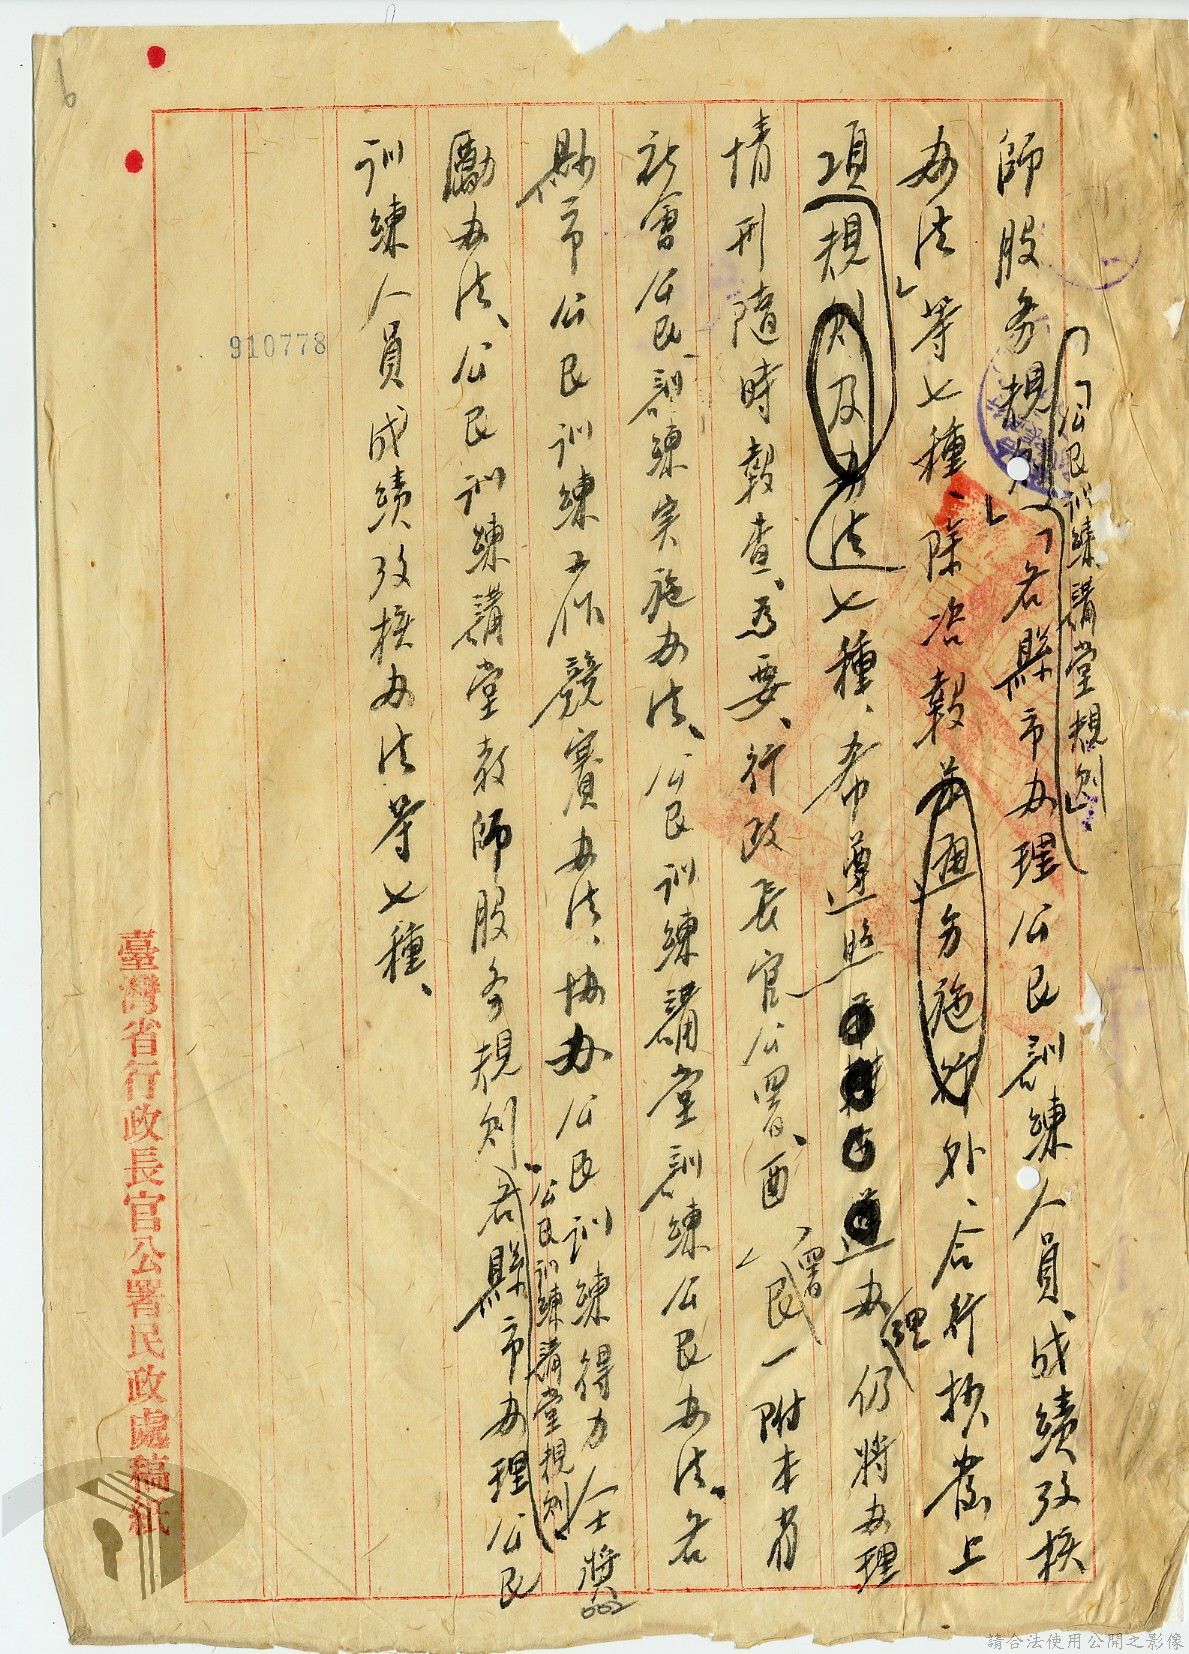 「公民訓練講堂規則」
師服务規則「各縣市办理公民訓練人員成績攷核
办法」等七種、除咨報並通令施行外、合行抄發上
項規則及办法七種、希遵照办理仍將办理
情形隨時報查、為要、行政長官公署、酉(署)民一附本省
社會公民訓練实施办法、公民訓練講堂訓練公民办法。各
縣市公民訓練工作競賽办法、協办公民訓練得力人士獎
勵办法、公民訓練講堂教師服务規則、各縣市办理公民
公民訓練講堂規則
訓練人員成績攷核办法等七種、
910778
臺灣省行政長官公署民政處稿紙
002
6
請合法使用公開之影像